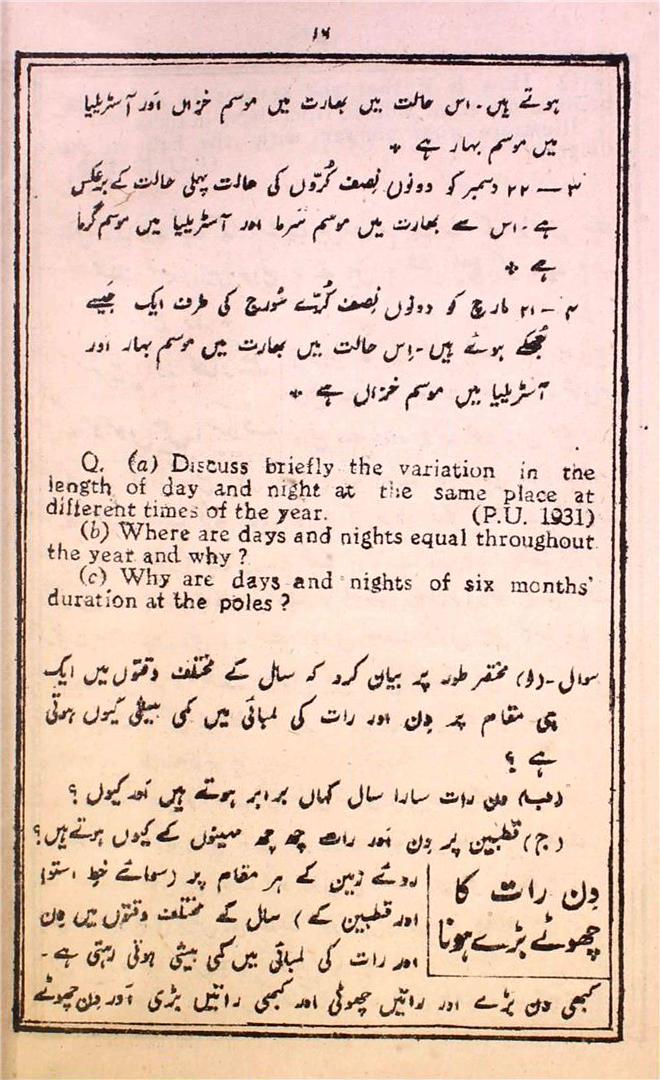 ۱۶
ہوتے ہیں۔ اس حالت میں بھارت میں موسم خزاں اَور آسٹریلیا
میں موسم بہار ہے *
۳ — ۲۲ دسمبر کو دونوں نِصف کُرّوں کی حالت پہلی حالت کے برعکس
ہے۔ اس سے بھارت میں موسم سَرما اور آسٹریلیا میں موسم گرما
ہے *
۴ — ۲۱ مارچ کو دونوں نِصف کُرّے سُورج کی طرف ایک جَیسے
جُھکے ہوئے ہیں۔ اِس حالت میں بھارت میں موسم بہار اور
آسٹریلیا میں موسم خزاں ہے *
Q. (a) Discuss briefly the variation in the
length of day and night at the same place at
different times of the year. (P.U. 1931)
(b) Where are days and nights equal throughout
the year and why ?
(c) Why are days and nights of six months'
duration at the poles ?
سوال۔ (ا) مختصر طور پر بیان کرو کہ سال کے مختلف وقتوں میں ایک
ہی مقام پر دِن اور رات کی لمبائی میں کمی بیشی کیوں ہوتی
ہے ؟
(ب) دن رات سارا سال کہاں برابر ہوتے ہیں اَور کیوں ؟
(ج) قطبین پر دِن اَور رات چھ چھ مہینوں کے کیوں ہوتے ہیں ؟
دِن رات کا
چھوٹے بڑے ہونا
روئے زمین کے ہر مقام پر (سوائے خطِ استوا
اور قطبین کے) سال کے مختلف وقتوں میں دِن
اور رات کی لمبائی میں کمی بیشی ہوتی رہتی ہے۔
کبھی دن بڑے اور راتیں چھوٹی اور کبھی راتیں بڑی اَور دِن چھوٹے